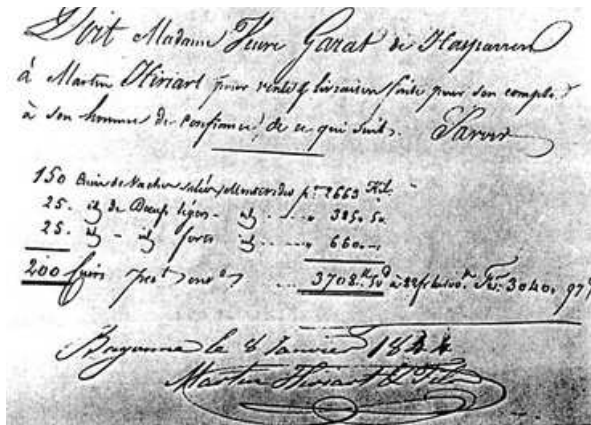 Doit Madame Veuve Garat de Hasparren
à Martin Hiriart pour vente & livraison faite pour son compte
à son homme de confiance, de ce qui suit. Savoir
150 Cuirs de Vaches salées Montevideo p. 2663
25. id de Bœufs légers - id 385.50
25. id - id forts id 660
200 Cuirs 3708 50 à 82 Fr. 3040. 97
Bayonne le 8 Janvier 1844
Martin Hiriart & Fils